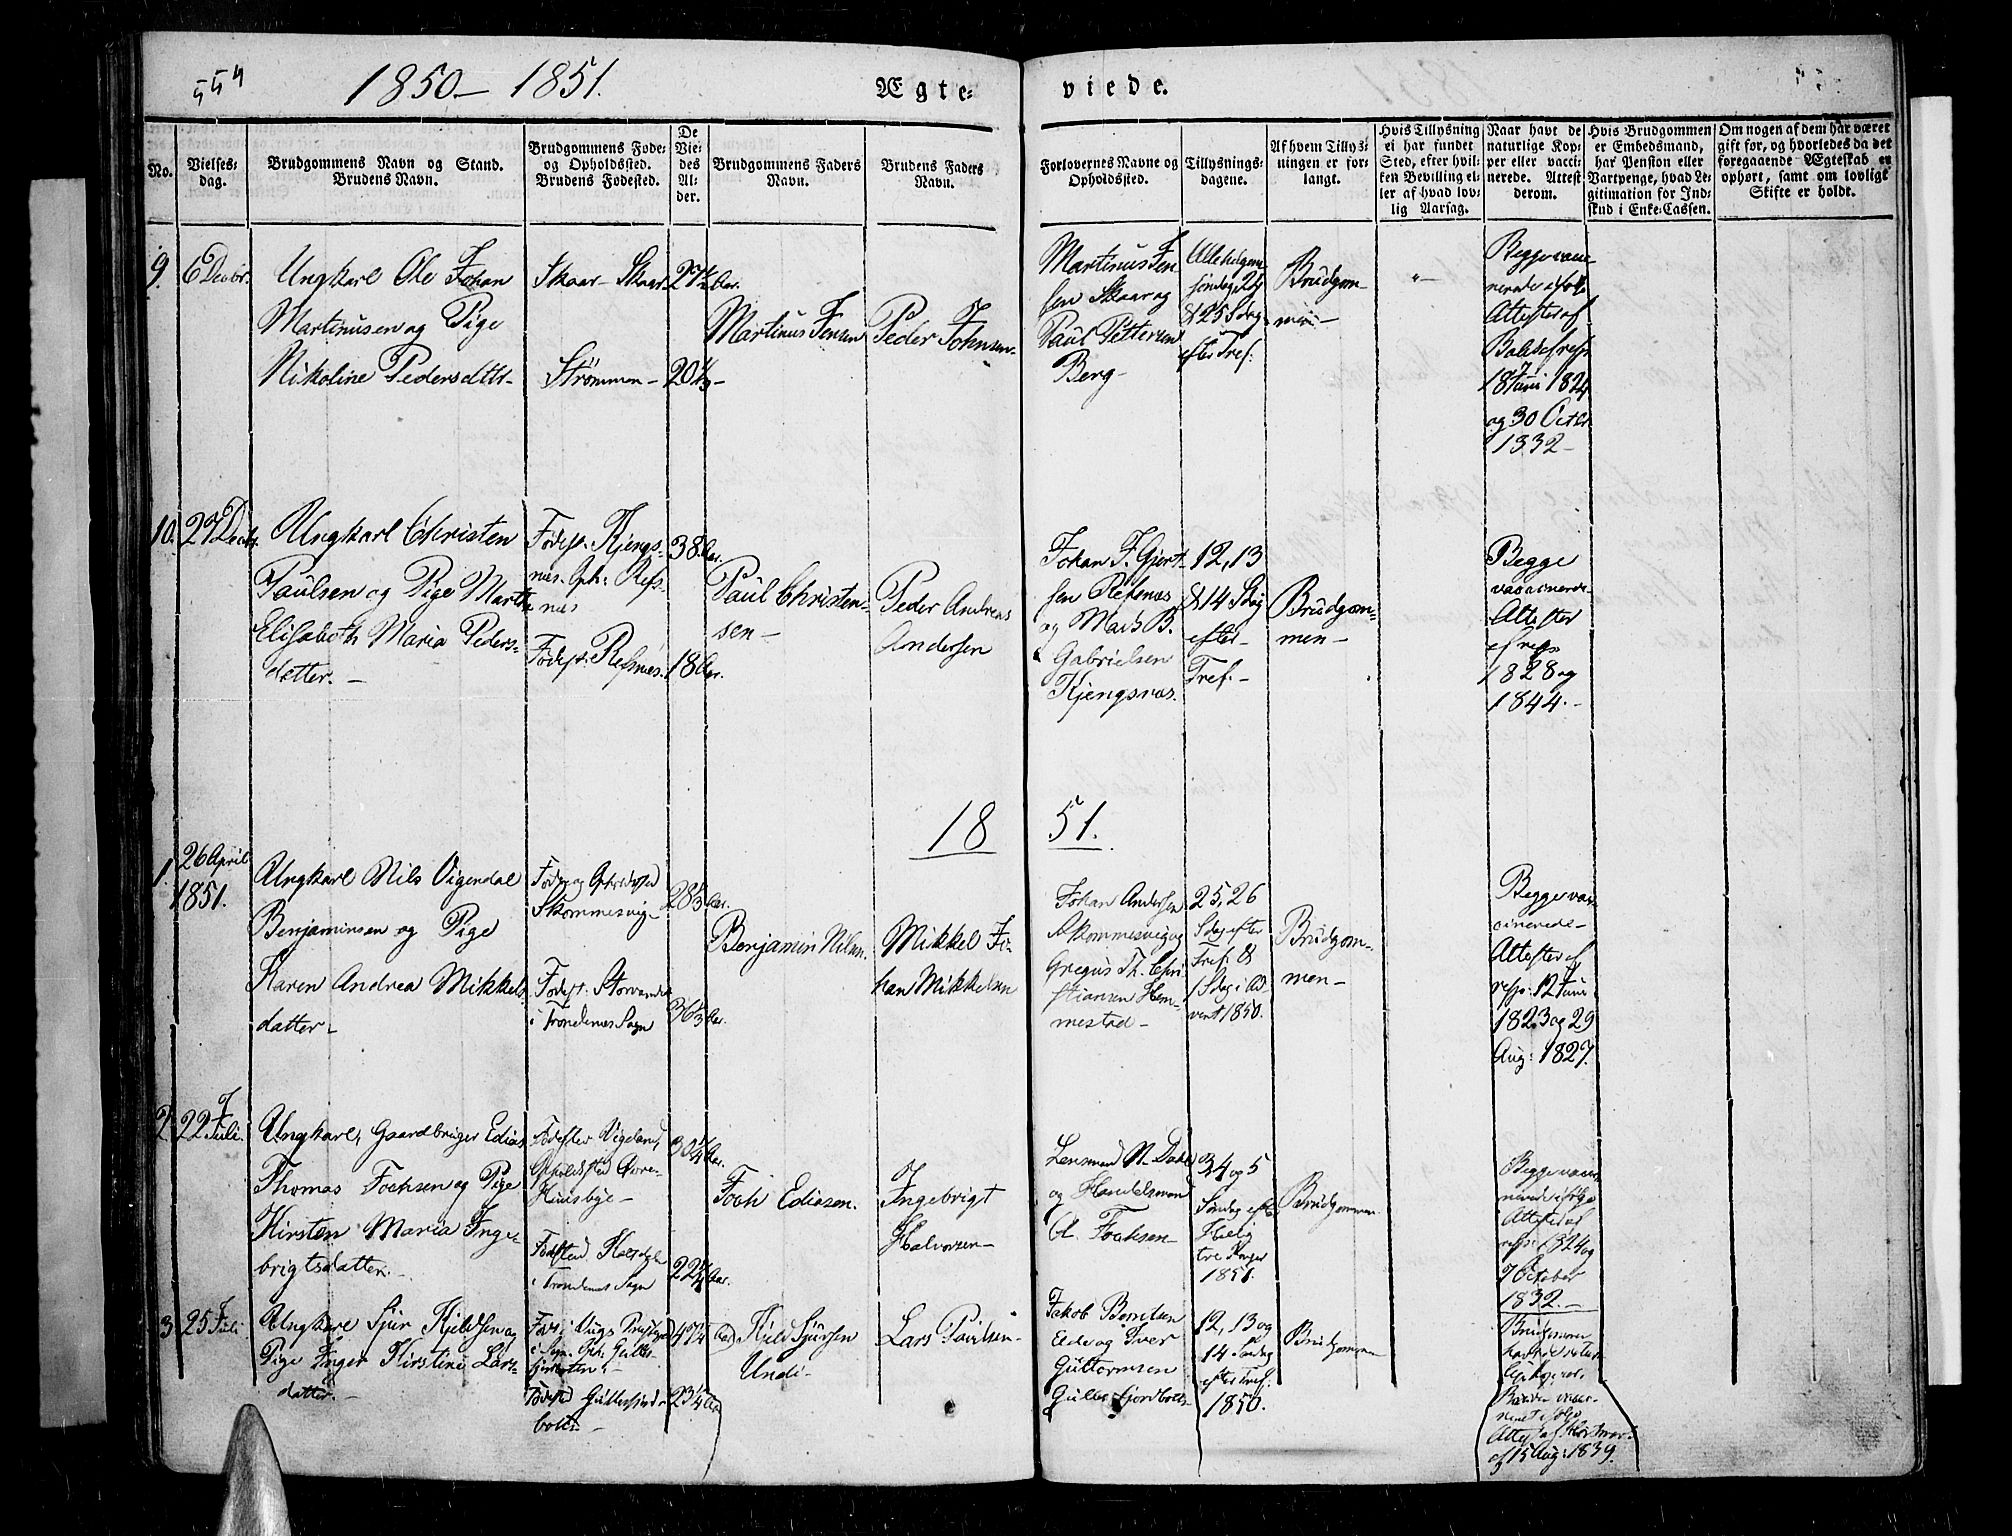 554
1850 - 1851.
Ægte-
viede.
No.
Vielses-
dag.
Brudgommens Navn og Stand.
Brudens Navn.
Brudgommens Føde-
og Opholdssted.
Brudens Fødested.
De
Vie-
des
Al-
der.
Brudgommens Faders
Navn.
Brudens Faders
Navn.
Forlovernes Navne og
Opholdssted.
Tillysnings-
dagene.
Af hvem Tillys-
ningen er for-
langt.
Hvis Tillysning
ei har fundet
Sted, efter hvil-
ken Bevilling el-
ler af hvad lov-
lig Aarsag.
Naar havt de
naturlige Kop-
per eller vacci-
nerede. Attest
derom.
Hvis Brudgommen
er Embedsmand,
har Pension eller
Vartpenge, hvad Le-
gitimation for Ind-
skud i Enke-Cassen.
Om nogen af dem har været
gift før, og hvorledes da det
foregaaende Ægteskab er
ophørt, samt om lovligt
Skifte er holdt.
9. 6 Decbr.
Ungkarl Ole Johan
Martinusen og Pige
Nikoline Pedersdttr-
Skaar - Skaar
Strømmen -
27½ Aar.
20⅓ -
Martinus Jensen
Peder Johnsen-
Martinus Jen
sen Skaar og
Paul Pettersen
Berg -
Allehelgens
søndag 24
& 25 Sdag
efter Tref:
Brudgom-
men -
Begge vacci
nerede ifølge
Attester af
18 Juni 1824
og 30 Octbr
1832 -
10. 27 Decbr.
Ungkarl Christen
Paulsen og Pige Marthe
Elisabeth Maria Peders-
datter. -
Fødest. Kjengs-
næs. Oph: Refs-
næs
Fødest: Refsnæs.
38 Aar.
18 Aar.
Paul Christen-
sen -
Peder Andreas
Andersen
Johan F. Gjert-
sen Refsnæs
og Mads B.
Gabrielsen
Kjengsnæs.
12, 13
& 14 Sdg
efter
Tref. -
Brudgom-
men -
Begge
vaccinerede
Attester
af resp
1828 og
1844. -
18 51.
1. 26 April
1851.
Ungkarl Nils Vigendal
Benjaminsen og Pige
Karen Andrea Mikkels
datter -
Føde og Opholdssted
Skommesvig -
Fødest. Storvandet
i Trondenes Sogn
28⅓ Aar.
36⅓ Aar.
Benjamin Nilsen.
Mikkel Jo-
han Mikkelsen
Johan Andersen
Skommesvig og
Gregus Th. Chri
stiansen Hem-
mestad -
25, 26
Sdag efter
Tref: &
1 Sdag i Ad
vent 1850.
Brudgom-
men -
Begge vac-
cinerede -
Attester af
resp: 12 Juni
1823 og 29
Aug: 1827.
2. 22 Juli.
Ungkarl, Gaardbruger Edias
Thomas Fochsen og Pige
Kirsten Maria Inge-
brigtsdatter. -
Fødested Vigeland,
Opholdssted
Huusbye -
Fødested
i Trondenes Sogn
30¼ Aar.
22¼ Aar.
Foch Ediasen.
Ingebrigt
Halvorsen -
Lensmand N. Dahl
og Handelsmand
A. Fochsen -
3, 4 og 5
Søndag efter
Hellig
tre Konger
1851.
Brudgommen
Begge vacci-
nerede ifølge
Attester af
resp: 1824 og
7 October
1832. -
3. 25 Juli
Ungkarl Sjur Kjeldsen og
Pige Inger Kirstine Lars-
datter. -
Født i Vangs Præstegjeld
i Sogn. Oph: Gulles-
fjordbotn -
Fødested Gullesfjord-
botn -
47¼ Aar
23¼ Aar
Kjeld Sjursen
Undi -
Lars Paulsen -
Jakob Berntsen
Elde og Iver
Guttormsen
Gullesfjordbotn -
12, 13 og
14 Søndag
efter Tref:
1850.
Brudgommen
Brudgommen
havt de natur-
lige Kopper.
Bruden vacci-
neret ifølge
Attest af
af 15 Aug: 1839.